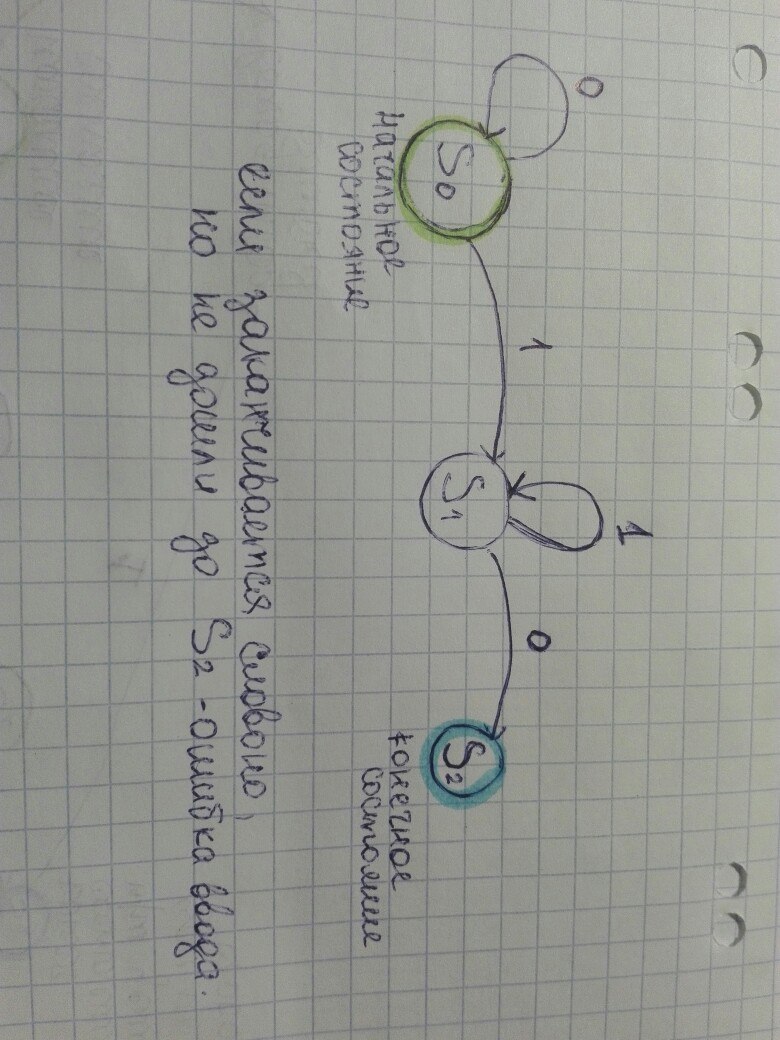 1
0
1
0
S₀
S₁
S₂
начальное
состояние
конечное
состояние
если заканчивается словоно,
но не дошли до S₂ - ошибка ввода.